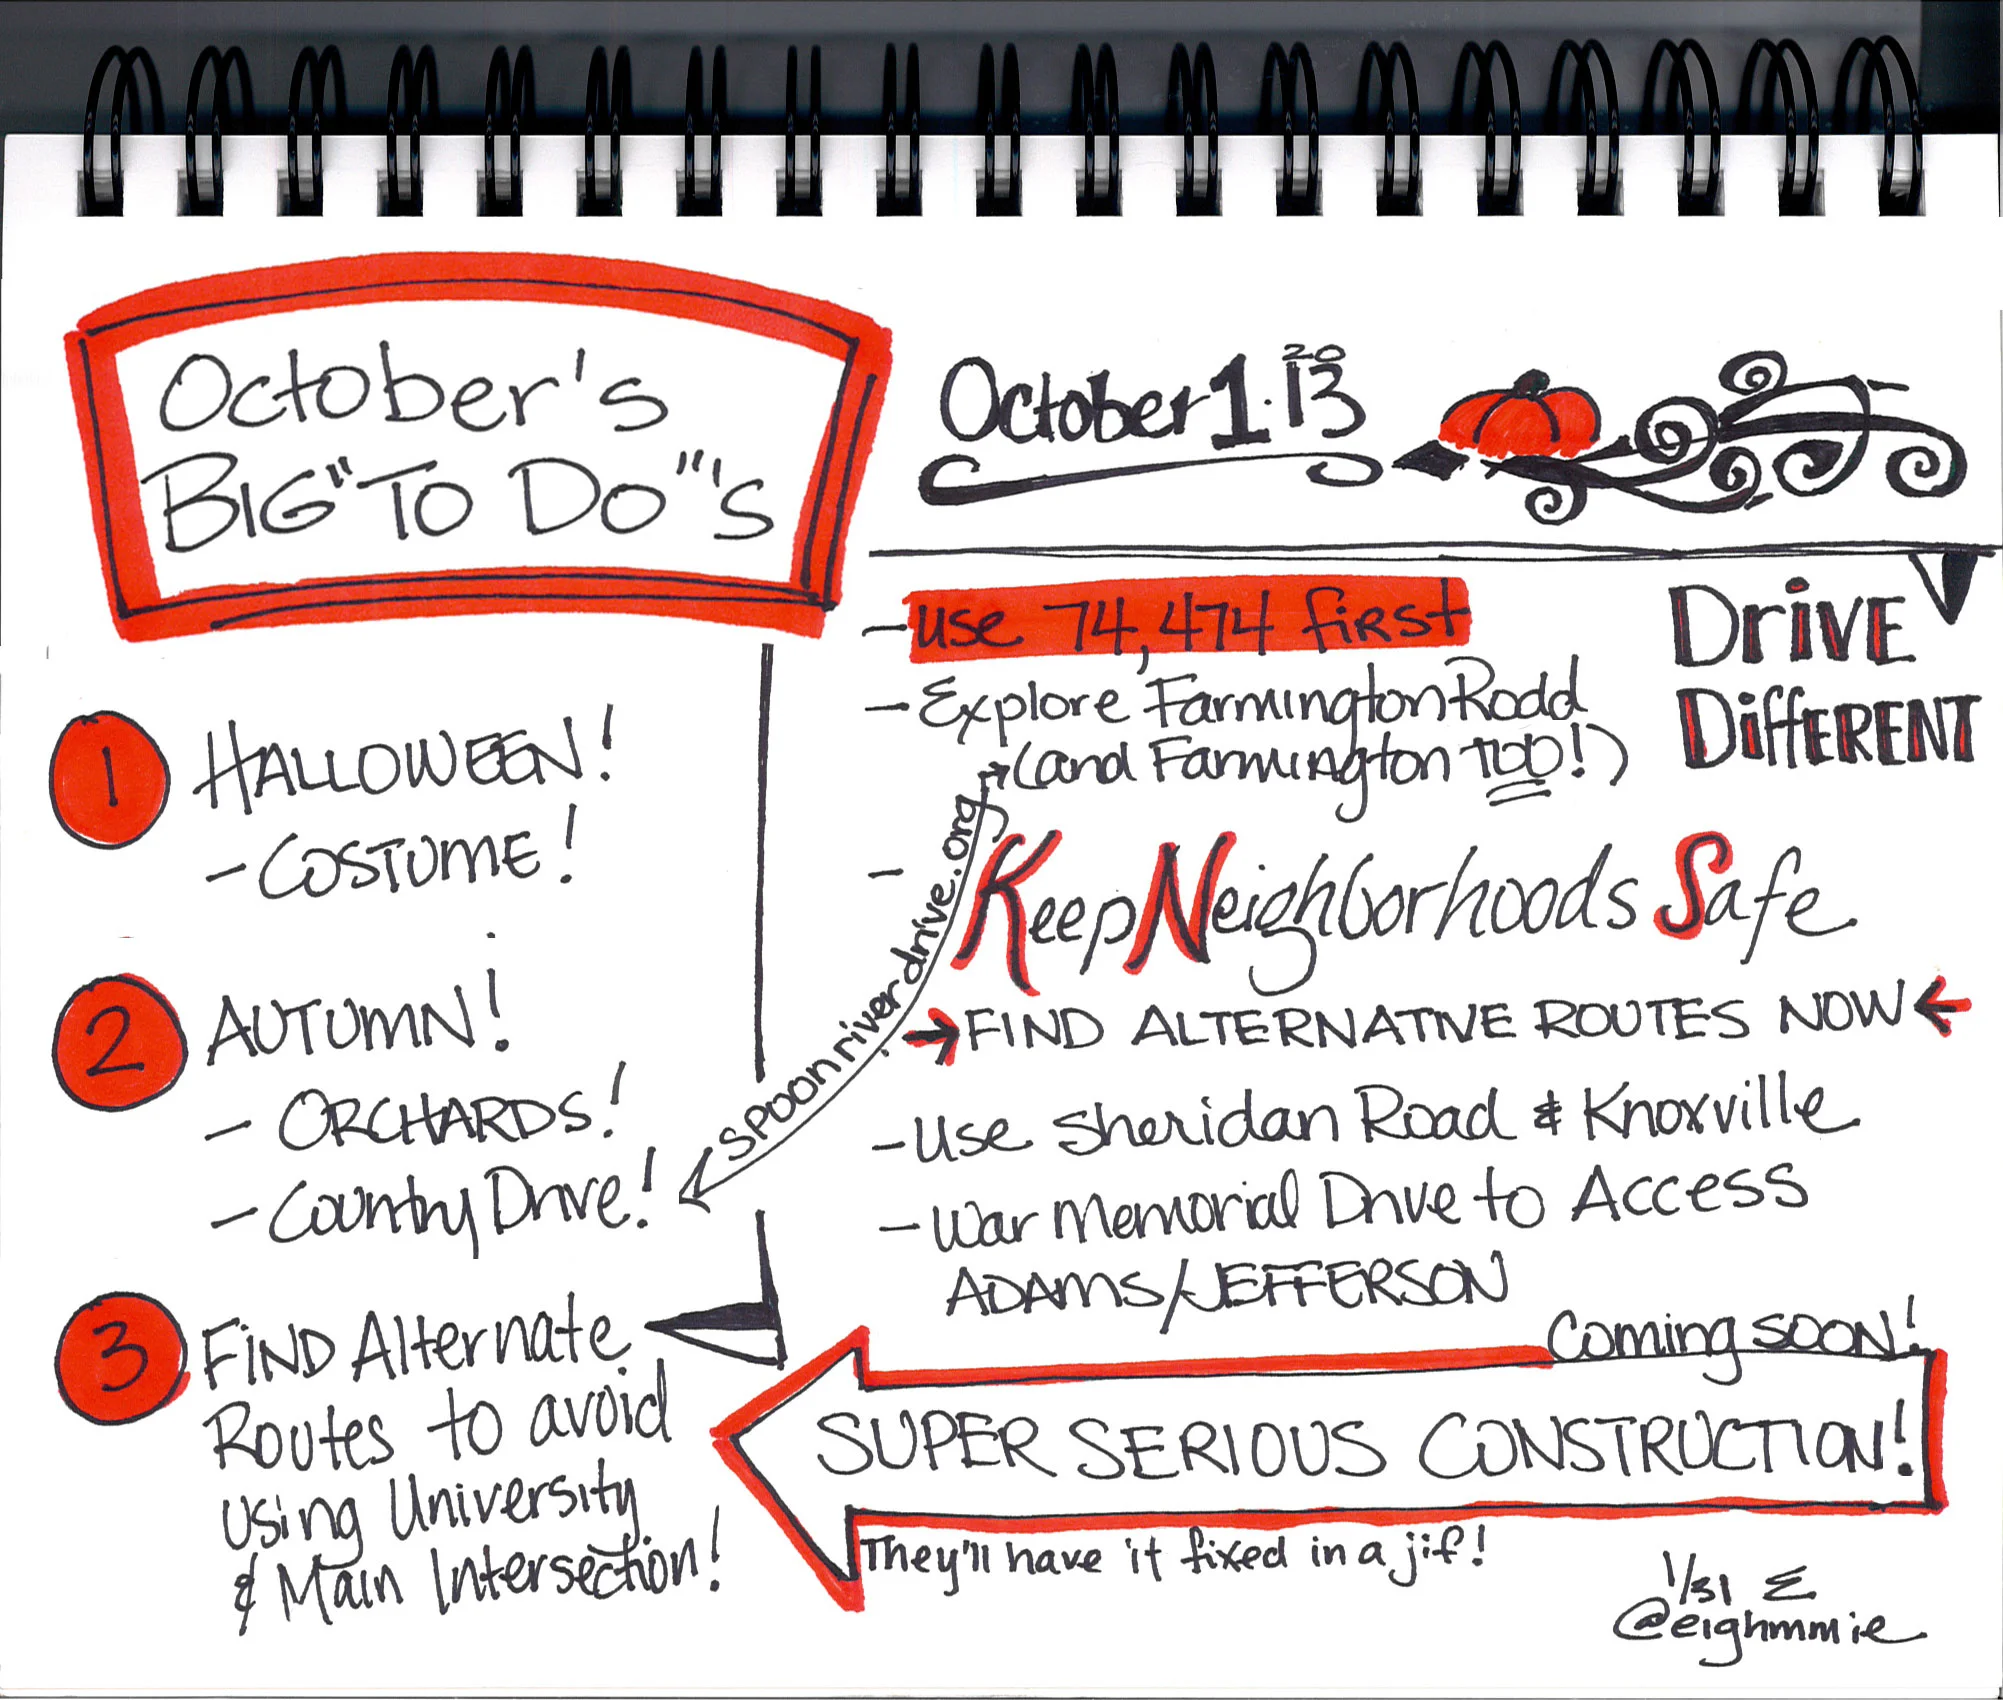 October's
BIG "TO DO"'s
1 HALLOWEEN!
- COSTUME!
2 AUTUMN!
- ORCHARDS!
- Country Drive!
3 FIND Alternate
Routes to avoid
using University
& Main Intersection!
October 1. 2013
- use 74, 474 first
- Explore Farmington Road
(and Farmington TOO!)
Drive
Different
spoonriverdrive.org
- Keep Neighborhoods Safe
→ FIND ALTERNATIVE ROUTES NOW ←
- Use Sheridan Road & Knoxville
- War Memorial Drive to Access
ADAMS/JEFFERSON
Coming soon!
SUPER SERIOUS CONSTRUCTION!
They'll have it fixed in a jif!
1/31 E
@eighmmie